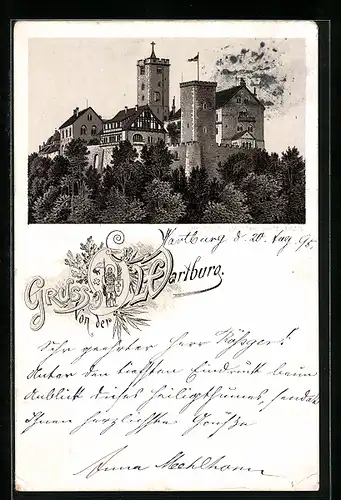 Wartburg d. 20. Aug. 95.
Gruss
von der
Wartburg.
Sehr geehrter Herr
Unter den tiefsten Eindruck beim
Anblick dieses Heiligthumes, sendet
Ihnen herzlichste Grüße
Anna